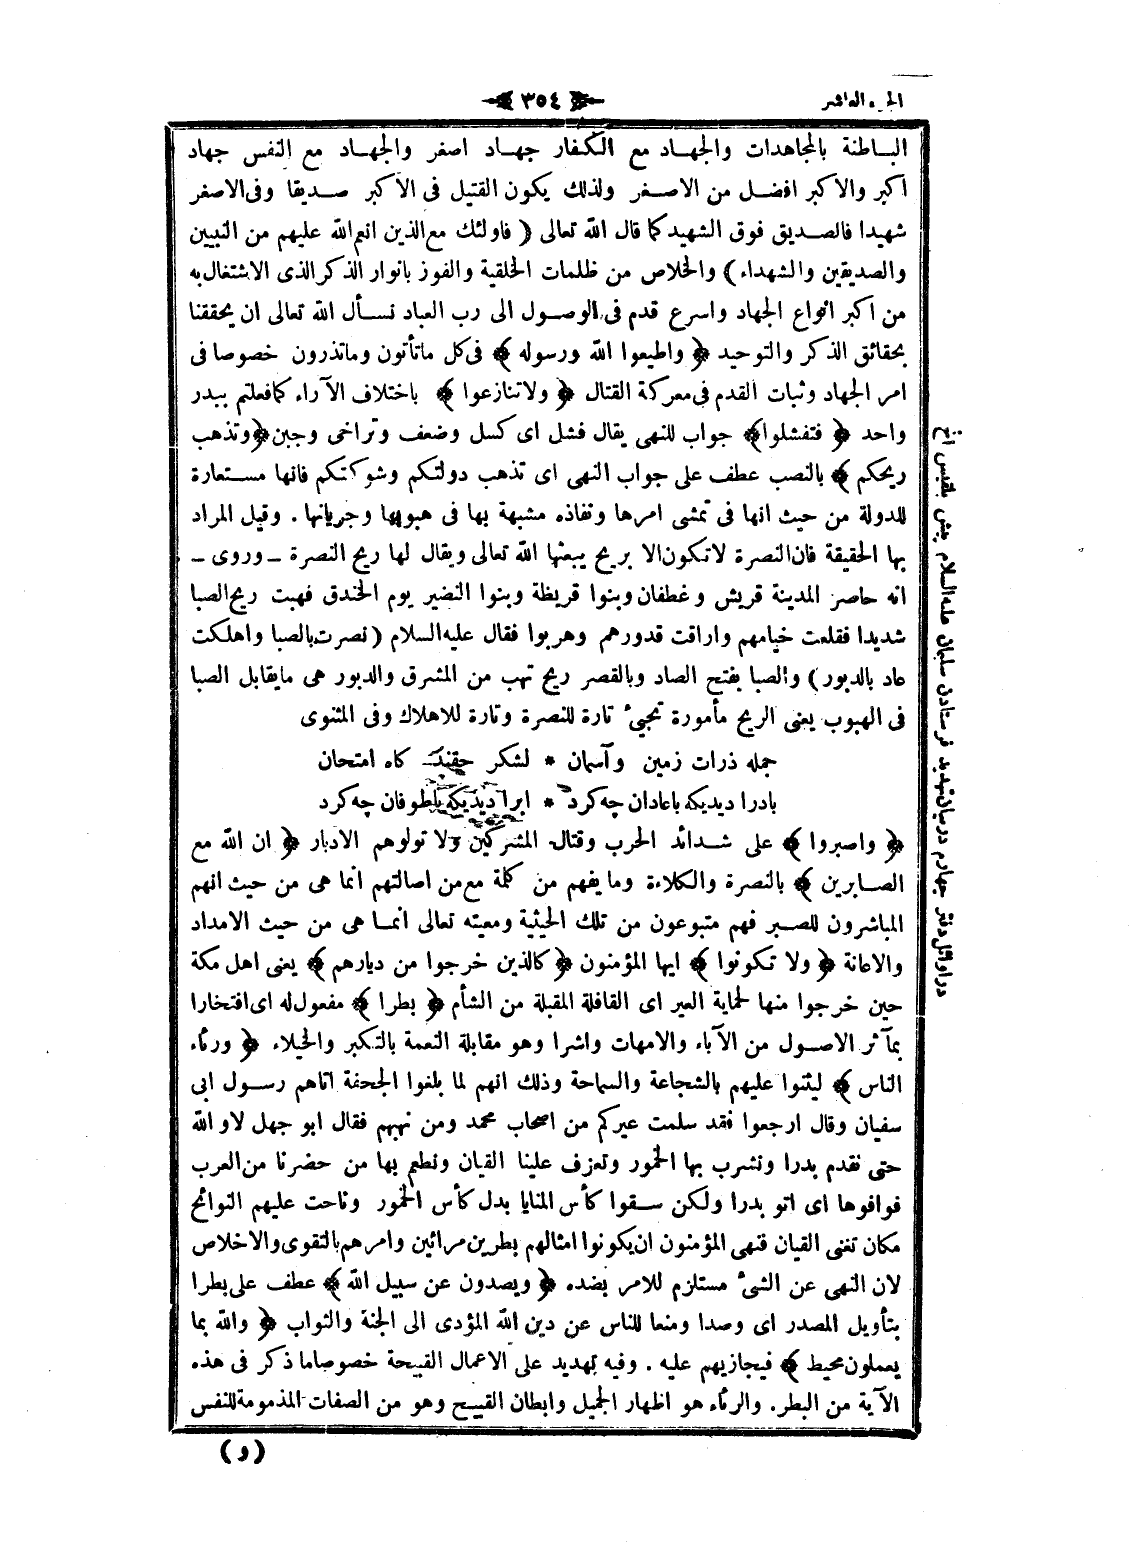 الجزء العاشر
﴿ ٣٥٤ ﴾
الباطنة بالمجاهدات والجهاد مع الكفار جهاد اصغر والجهاد مع النفس جهاد
اكبر والاكبر افضل من الاصغر ولذلك يكون القتيل فى الاكبر صديقا وفى الاصغر
شهيدا فالصديق فوق الشهيد كما قال الله تعالى ( فاولئك مع الذين انعم الله عليهم من النبيين
والصديقين والشهداء ) والخلاص من ظلمات الخلقية والفوز بانوار الذكر الذى الاشتغال به
من اكبر انواع الجهاد واسرع قدم فى الوصول الى رب العباد نسأل الله تعالى ان يحققنا
بحقائق الذكر والتوحيد ﴿ واطيعوا الله ورسوله ﴾ فى كل ما تأتون وما تذرون خصوصا فى
امر الجهاد وثبات القدم فى معركة القتال ﴿ ولا تنازعوا ﴾ باختلاف الآراء كما فعلتم ببدر
واحد ﴿ فتفشلوا ﴾ جواب للنهى يقال فشل اى كسل وضعف وتراخى وجبن ﴿ وتذهب
ريحكم ﴾ بالنصب عطف على جواب النهى اى تذهب دولتكم وشوكتكم فانها مستعارة
للدولة من حيث انها فى تمشى امرها ونفاذه مشبهة بها فى هبوبها وجريانها . وقيل المراد
بها الحقيقة فان النصرة لا تكون الا بريح يبعثها الله تعالى ويقال لها ريح النصرة ـ وروى ـ
انه حاصر المدينة قريش وغطفان وبنوا قريظة وبنوا النضير يوم الخندق فهبت ريح الصبا
شديدا فقلعت خيامهم واراقت قدورهم وهربوا فقال عليه السلام ( نصرت بالصبا واهلكت
عاد بالدبور ) والصبا بفتح الصاد وبالقصر ريح تهب من المشرق والدبور هى ما يقابل الصبا
فى الهبوب يعنى الريح مأمورة تجيئ تارة للنصرة وتارة للاهلاك وفى المثنوى
جمله ذرات زمين وآسمان * لشكر حقند كاه امتحان
بادرا ديديكه باعادان چه كرد * ابرا ديديكه باطوفان چه كرد
﴿ واصبروا ﴾ على شدائد الحرب وقتال المشركين ولا تولوهم الادبار ﴿ ان الله مع
الصابرين ﴾ بالنصرة والكلاءة وما يفهم من كلمة مع من اصالتهم انما هى من حيث انهم
المباشرون للصبر فهم متبوعون من تلك الحيثية ومعيته تعالى انما هى من حيث الامداد
والاعانة ﴿ ولا تكونوا ﴾ ايها المؤمنون ﴿ كالذين خرجوا من ديارهم ﴾ يعنى اهل مكة
حين خرجوا منها لحماية العير اى القافلة المقبلة من الشأم ﴿ بطرا ﴾ مفعول له اى افتخارا
بمآثر الاصول من الآباء والامهات واشرا وهو مقابلة النعمة بالتكبر والخيلاء ﴿ ورئاء
الناس ﴾ ليثنوا عليهم بالشجاعة والسماحة وذلك انهم لما بلغوا الجحفة اتاهم رسول ابى
سفيان وقال ارجعوا فقد سلمت عيركم من اصحاب محمد ومن نهبهم فقال ابو جهل لا والله
حتى نقدم بدرا ونشرب بها الخمور وتعزف علينا القيان ونطعم بها من حضرنا من العرب
فوافوها اى اتو بدرا ولكن سقوا كأس المنايا بدل كأس الخمور وناحت عليهم النوائح
مكان تغنى القيان فنهى المؤمنون ان يكونوا امثالهم بطرين مرائين وامرهم بالتقوى والاخلاص
لان النهى عن الشئ مستلزم للامر بضده ﴿ ويصدون عن سبيل الله ﴾ عطف على بطرا
بتأويل المصدر اى وصدا ومنعا للناس عن دين الله المؤدى الى الجنة والثواب ﴿ والله بما
يعملون محيط ﴾ فيجازيهم عليه . وفيه تهديد على الاعمال القبيحة خصوصا ما ذكر فى هذه
الآية من البطر . والرئاء هو اظهار الجميل وابطان القبيح وهو من الصفات المذمومة للنفس
(و)
در اوائل دفتر چهارم در بيان تهديد فرستادن سليمان عليه السلام پيش بلقيس الخ